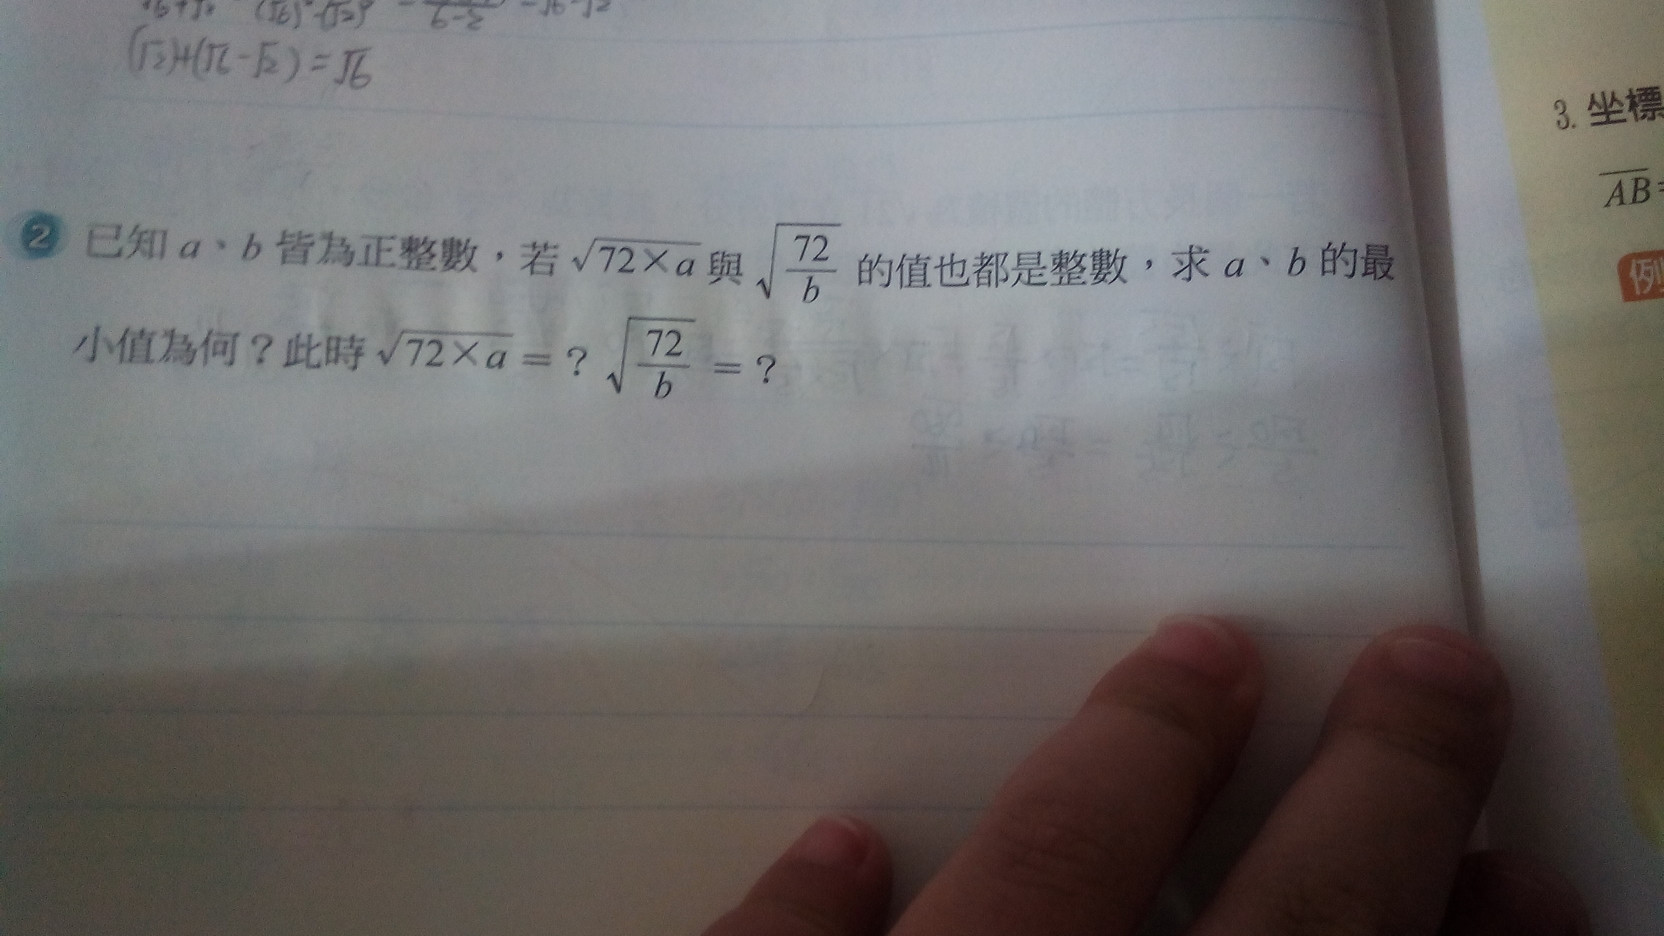 (√2)+(√6-√2)=√6
3. 坐標
AB=
2 已知 a、b 皆為正整數，若 √72×a 與 √72/b 的值也都是整數，求 a、b 的最
例
小值為何？此時 √72×a = ? √72/b = ?